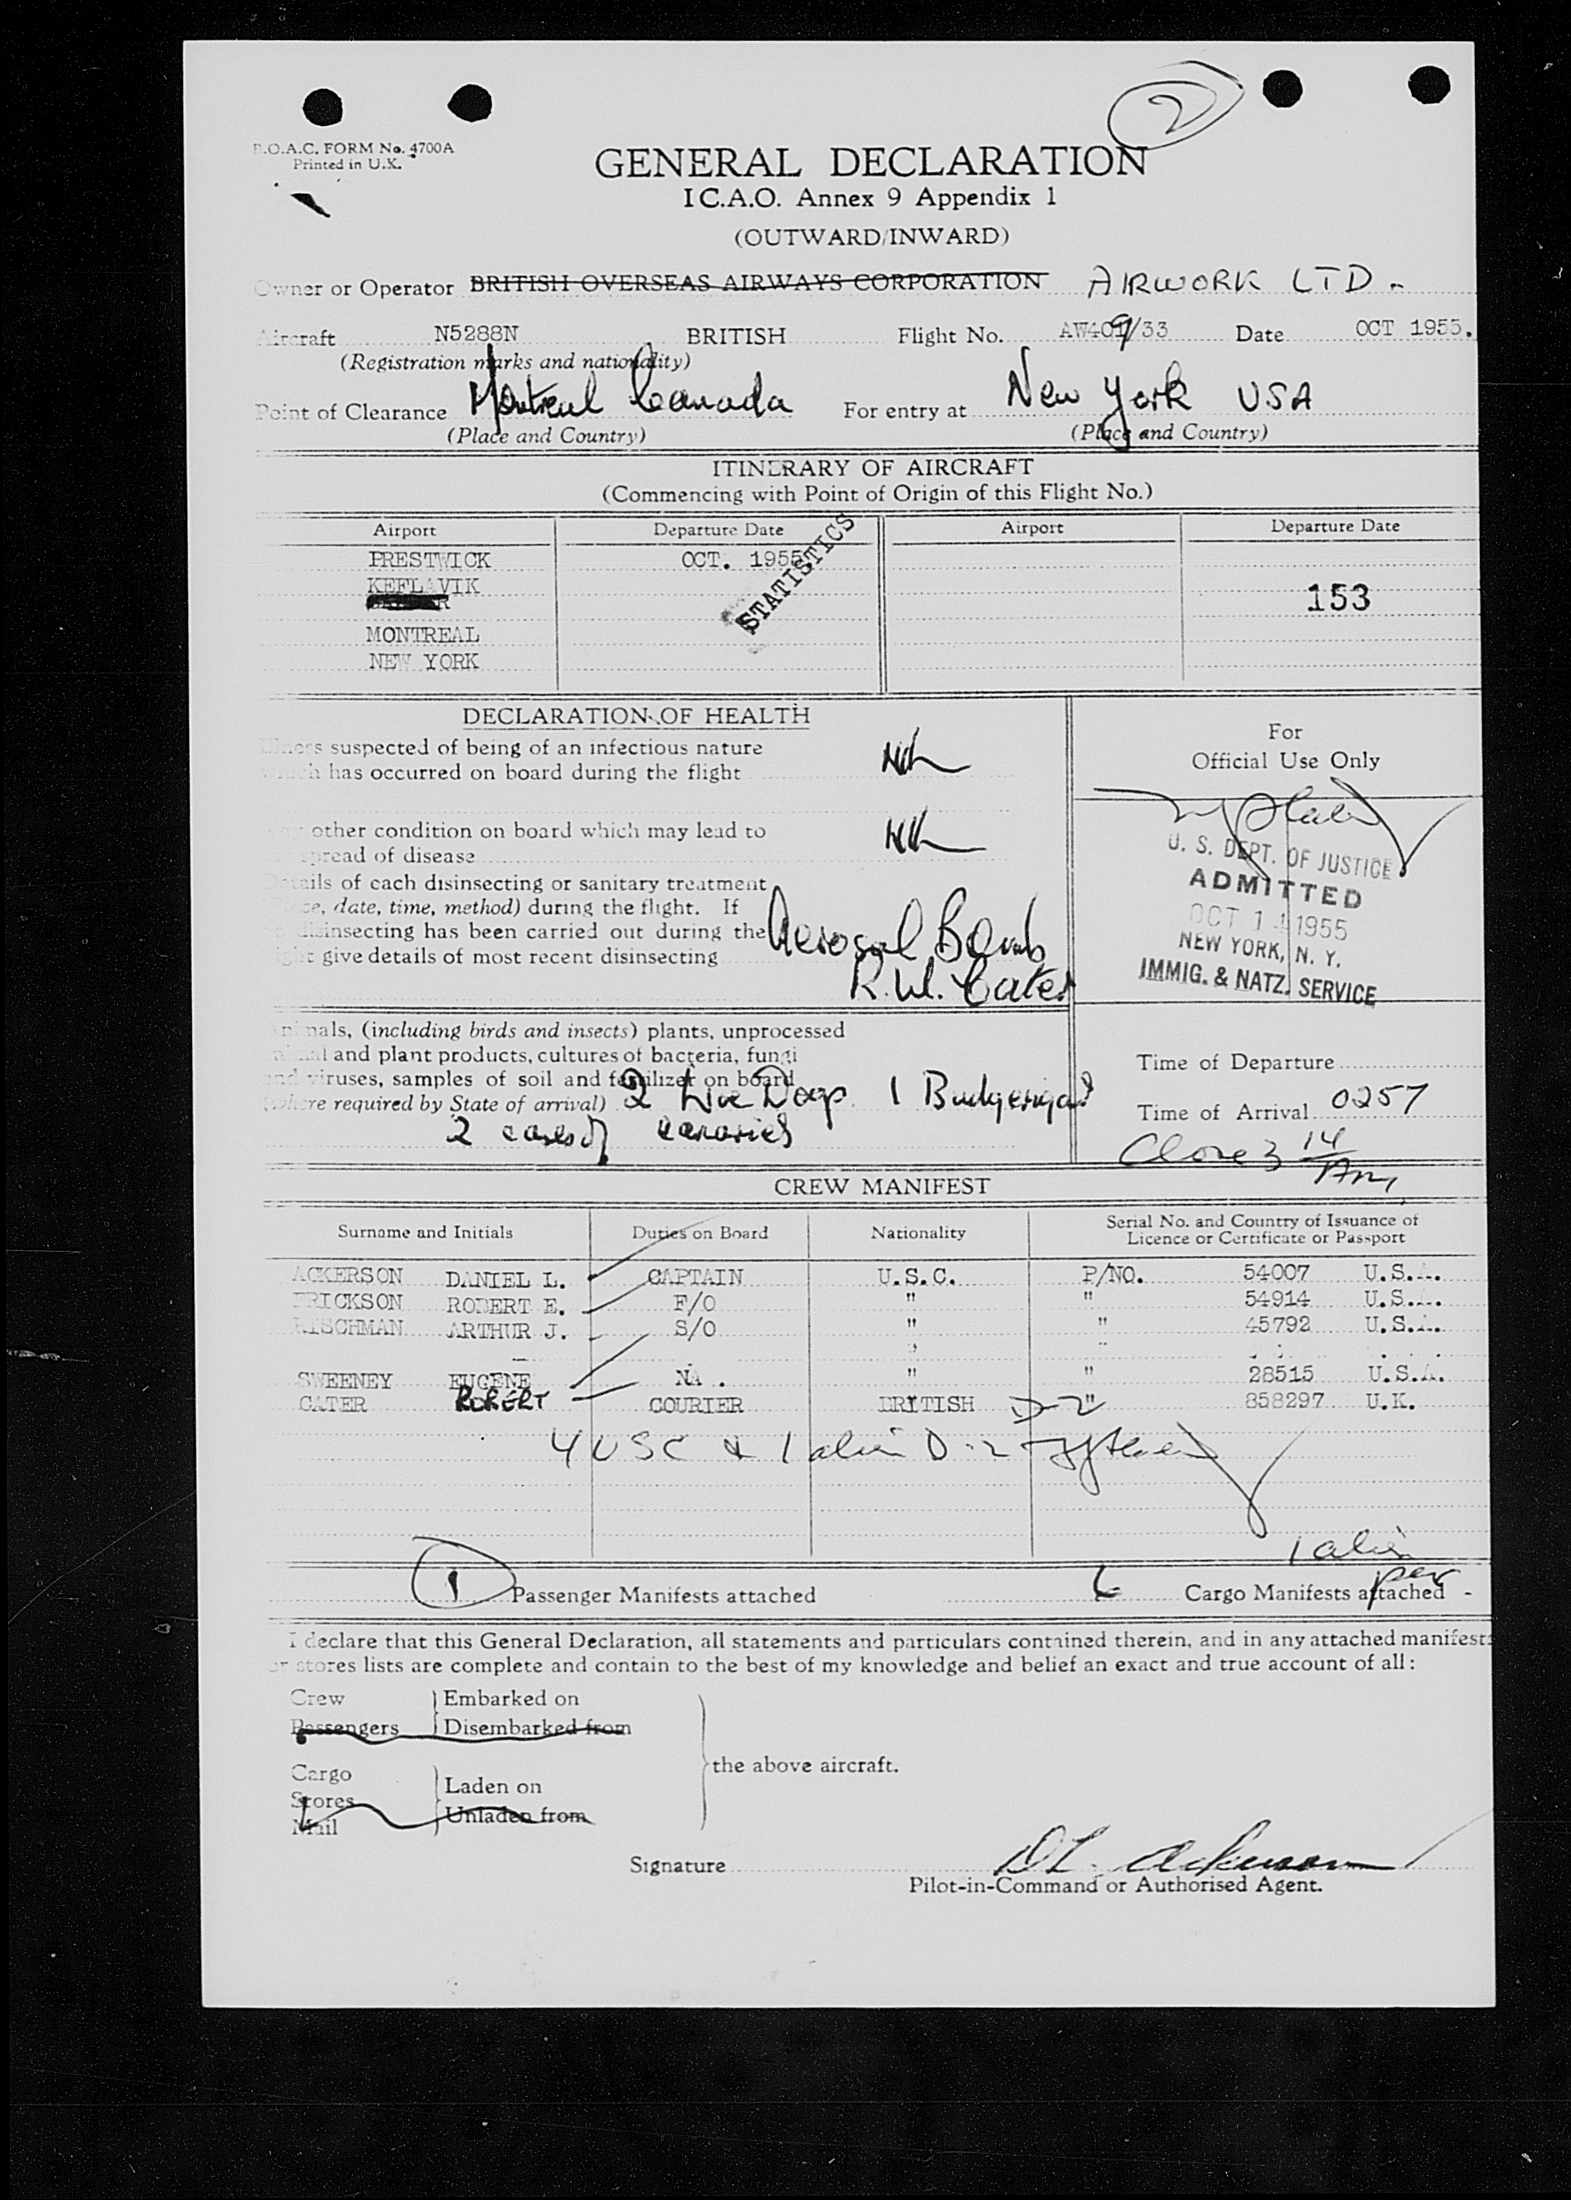 2
B.O.A.C. FORM No. 4700A
Printed in U.K.
GENERAL DECLARATION
I C.A.O. Annex 9 Appendix 1
(OUTWARD/INWARD)
Owner or Operator BRITISH OVERSEAS AIRWAYS CORPORATION AIRWORK LTD.
Aircraft N5288N BRITISH Flight No. AW409/33 Date OCT 1955.
(Registration marks and nationality)
Point of Clearance Montreal Canada For entry at New York USA
(Place and Country) (Place and Country)
ITINERARY OF AIRCRAFT
(Commencing with Point of Origin of this Flight No.)
Airport Departure Date Airport Departure Date
PRESTWICK OCT. 1955
STATISTICS
KEFLAVIK
153
MONTREAL
NEW YORK
DECLARATION OF HEALTH
Illness suspected of being of an infectious nature
which has occurred on board during the flight Nil
Any other condition on board which may lead to
spread of disease Nil
Details of each disinsecting or sanitary treatment
(place, date, time, method) during the flight. If
no disinsecting has been carried out during the
flight give details of most recent disinsecting
Aerosol Bomb
R. W. Cater
For
Official Use Only
U. S. DEPT. OF JUSTICE
ADMITTED
OCT 14 1955
NEW YORK, N. Y.
IMMIG. & NATZ. SERVICE
Animals, (including birds and insects) plants, unprocessed
animal and plant products, cultures of bacteria, fungi
and viruses, samples of soil and fertilizer on board
(where required by State of arrival) 2 Live Dogs 1 Budgerigar
2 cases of canaries
Time of Departure
Time of Arrival 0257
CREW MANIFEST
Surname and Initials Duties on Board Nationality Serial No. and Country of Issuance of
Licence or Certificate or Passport
ACKERSON DANIEL L. CAPTAIN U.S.C. P/NO. 54007 U.S.A.
ERICKSON ROBERT E. F/O " " 54914 U.S.A.
ARTHUR J. S/O " " 45792 U.S.A.
SWEENEY EUGENE NA. " " 28515 U.S.A.
CATER ROBERT COURIER BRITISH D-2 " 858297 U.K.
4 USC & 1 alien D-2
1 alien
per
1 Passenger Manifests attached 6 Cargo Manifests attached -
I declare that this General Declaration, all statements and particulars contained therein, and in any attached manifests
or stores lists are complete and contain to the best of my knowledge and belief an exact and true account of all:
Crew Embarked on
Passengers Disembarked from
the above aircraft.
Cargo
Stores Laden on
Mail Unladen from
Signature D L. Ackerson
Pilot-in-Command or Authorised Agent.